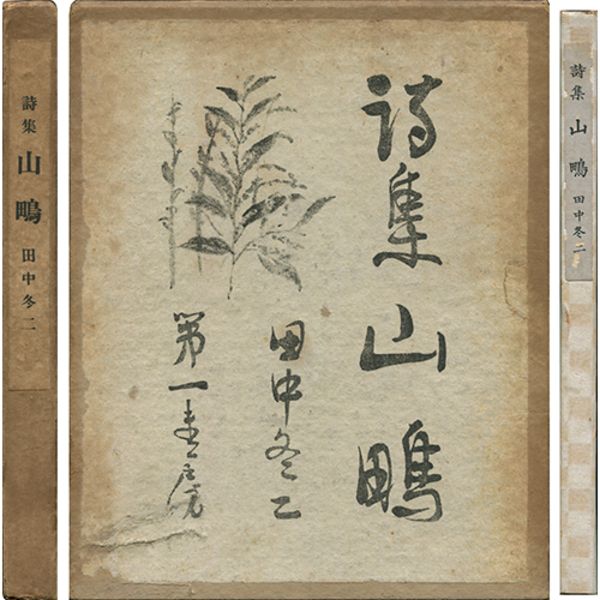 詩集 山鴫 田中冬二
詩集 山鴫
田中冬二
第一書房
詩集 山鴫 田中冬二